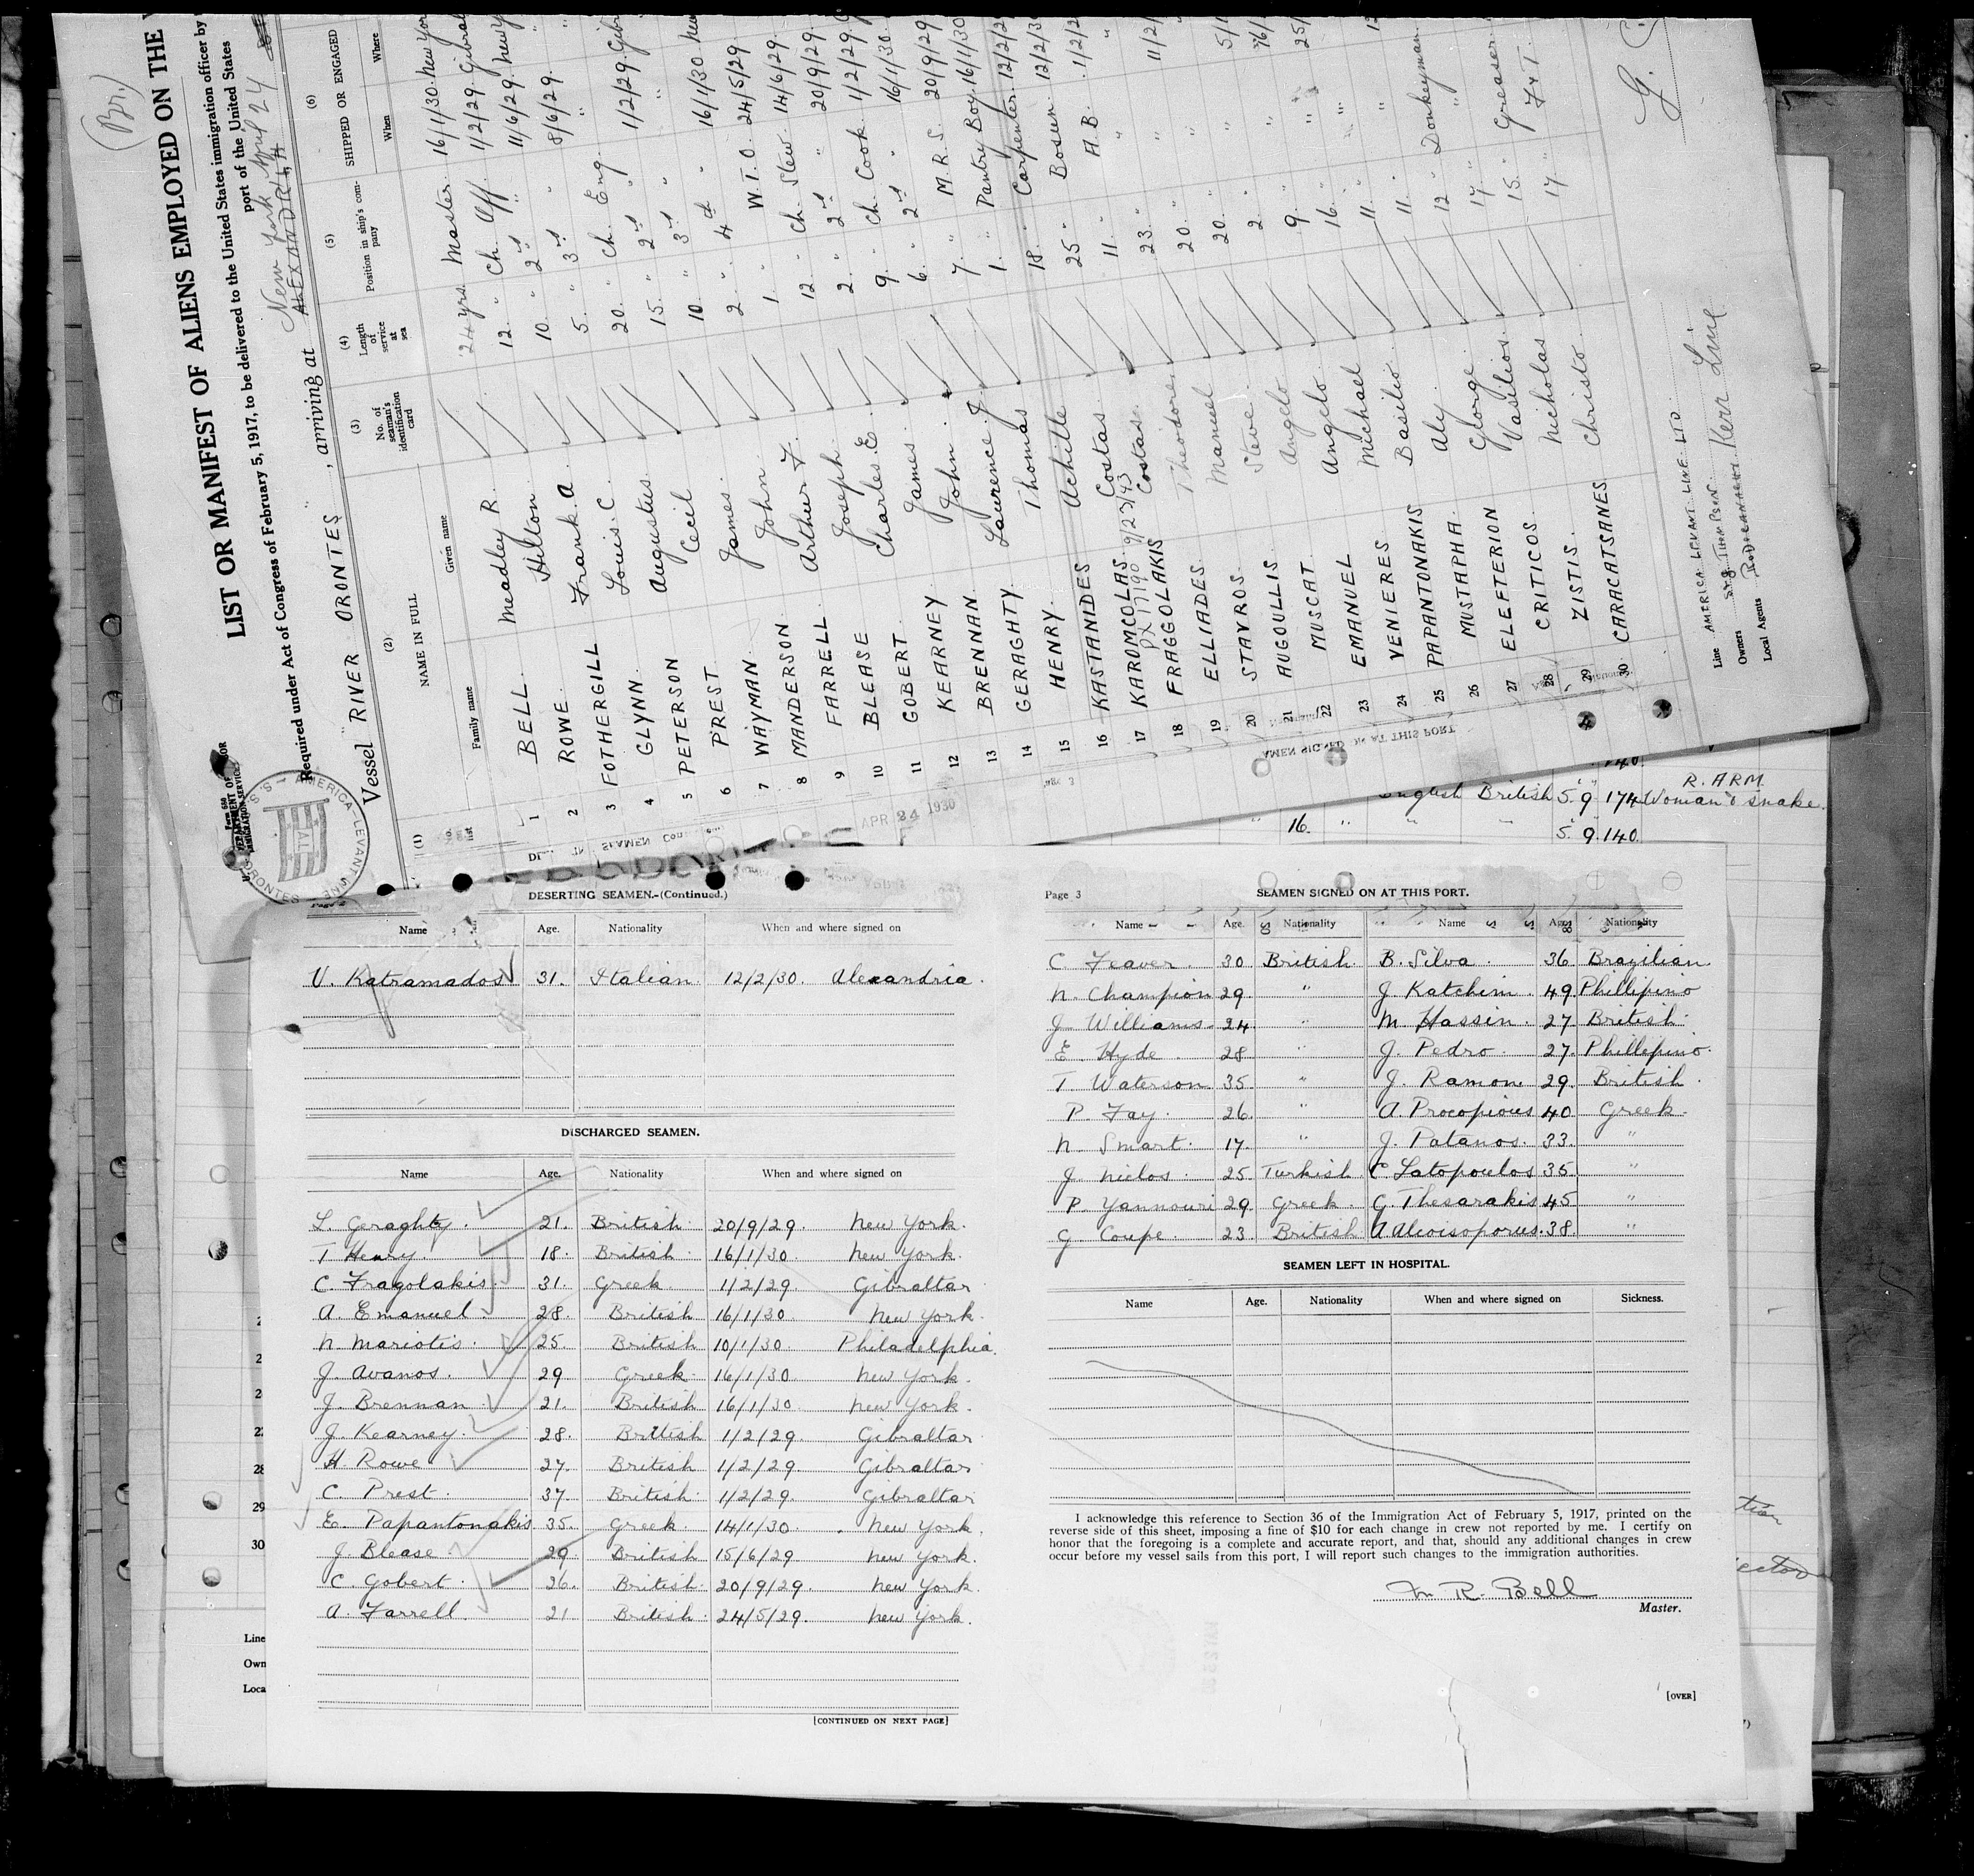 (Br.)
LIST OR MANIFEST OF ALIENS EMPLOYED ON THE
Required under Act of Congress of February 5, 1917, to be delivered to the United States immigration officer by
port of the United States
Vessel RIVER ORONTES , arriving at New York April 24
ALEXANDRIA
(1) (2) (3) (4) (5) (6)
No. list NAME IN FULL No. of seaman's identification card Length of service at sea Position in ship's company SHIPPED OR ENGAGED
Family name Given name When Where
1 BELL Meadley R. 24 yrs. Master 16/1/30 New York
2 ROWE Hilton 12 " Ch. Off. 1/2/29 Gibral
3 FOTHERGILL Frank. A. 10 " 2nd " 11/6/29 New Y
4 GLYNN Louis. C. 5 " 3rd " 8/6/29 "
5 PETERSON Augustus 20 " Ch. Eng "
6 PREST Cecil 15 " 2nd " 1/2/29 Gibr
7 WAYMAN James 10 " 3rd " "
8 MANDERSON John 2 " 4th " 16/1/30 New
9 FARRELL Arthur F. 1 " W.T.O. 24/5/29
10 BLEASE Joseph 12 " Ch. Stew. 14/6/29
11 GOBERT Charles. E. 2 " 2nd " 20/9/29
12 KEARNEY James 9 " Ch. Cook 1/2/29
13 BRENNAN John 6 " 2nd " 16/1/30
14 GERAGHTY Laurence. J. 7 " M.R.S. 20/9/29
15 HENRY Thomas 1 " Pantry Boy 16/1/30
16 KASTANIDES Achille 18 " Carpenter 12/2/29
17 KAROMCOLAS Costas 25 " Bosun 12/2/30
PX 17190 9/23/43
18 FRAGGOLAKIS Costas 11 " A.B. 1/2/2
19 ELLIADES Theodore 23 " " "
20 STAVROS Manuel 20 " " 11/2/
21 AUGOULLIS Steve 20 " "
22 MUSCAT Angelo 2 " " 5/1
23 EMANUEL Angelo 9 " "
24 VENIERES Michael 16 " " 25/
25 PAPANTONAKIS Basilio 11 " "
26 MUSTAPHA Aly 11 " "
27 ELEFTERION George 12 " Donkeyman
28 CRITICOS Vasilios 17 " "
29 ZISTIS Nicholas 15 " Greaser
30 CARACATSANES Christo 17 " F&T.
Line AMERICA LEVANT LINE LTD.
Owners
Local Agents Kerr Line
S.S. AMERICA LEVANT LINE
ORONTES
ALL
APR 24 1930
SEAMEN SIGNED ON AT THIS PORT
140.
English British 5. 9 174 Woman & snake
R. ARM
16. " " " 5. 9. 140.
Page 2
DESERTING SEAMEN.-(Continued.)
Name Age. Nationality When and where signed on
V. Katramados 31. Italian 12/2/30. Alexandria.
DISCHARGED SEAMEN.
Name Age. Nationality When and where signed on
L. Geraghty. 21. British. 20/9/29. New York.
T Henry 18. British. 16/1/30. New York.
C. Fragolakis. 31. Greek 1/2/29. Gibraltar
A. Emanuel 28. British 16/1/30. New York.
N. Mariotis. 25. British 10/1/30. Philadelphia.
J. Avanos. 29 Greek 16/1/30 New York.
J. Brennan 21. British 16/1/30 New York.
J. Kearney. 28. British 1/2/29. Gibraltar.
H Rowe 27. British 1/2/29. Gibraltar
C. Prest. 37. British. 1/2/29. Gibraltar
E. Papantonakis 35. Greek. 14/1/30. New York.
J. Blease 29. British 15/6/29 New York.
C. Gobert. 26. British. 20/9/29. New York.
A. Farrell. 21 British. 24/5/29. New York.
[CONTINUED ON NEXT PAGE]
28
29
30
Line
Own
Loca
Page 3
SEAMEN SIGNED ON AT THIS PORT.
Name Age. Nationality Name Age. Nationality
C. Feaver. 30 British. B. Silva. 36 Brazilian.
N. Champion 29. " J. Katchini. 49. Phillipino
J Williams 24 " M. Hassin. 27. British.
E. Hyde. 28 " J. Pedro. 27. Phillipino.
T. Waterson 35. " J. Ramon. 29. British.
P. Fay. 26. " A. Procopious 40 Greek.
N. Smart. 17. " J. Patanos. 33. "
J. Niclos. 25. Turkish. C. Latopoulos 35. "
P. Yannouri 29. Greek. G. Thesarakis 45 "
G. Coupe. 23. British A Aleoisoporus. 38. "
SEAMEN LEFT IN HOSPITAL.
Name Age. Nationality When and where signed on Sickness.
I acknowledge this reference to Section 36 of the Immigration Act of February 5, 1917, printed on the
reverse side of this sheet, imposing a fine of $10 for each change in crew not reported by me. I certify on
honor that the foregoing is a complete and accurate report, and that, should any additional changes in crew
occur before my vessel sails from this port, I will report such changes to the immigration authorities.
M. R. Bell
Master.
[OVER]